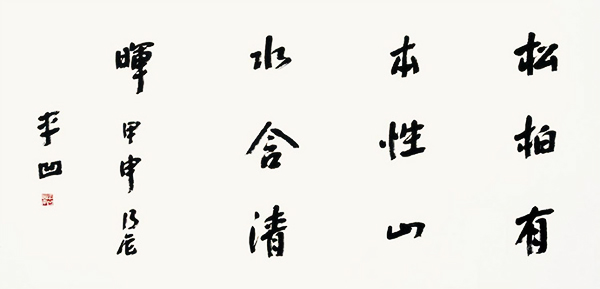 松柏有
本性山
水含清
暉 甲申
平凹